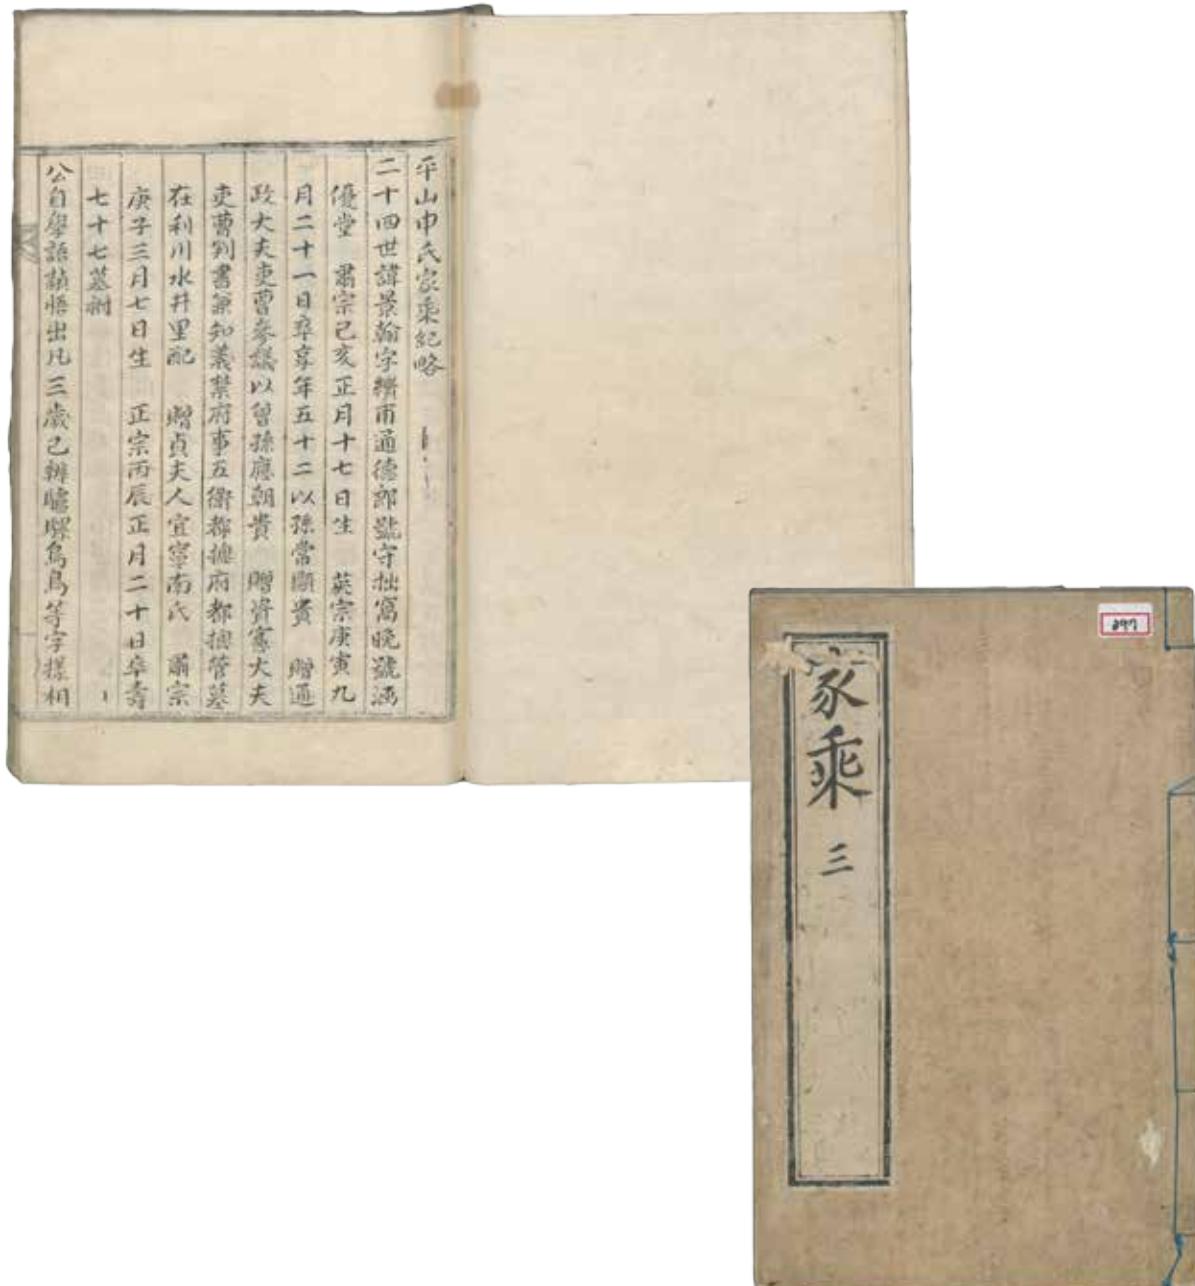 平山申氏家乘紀略
二十四世諱景翰字樍甫通德郎號守拙窩晚號涵
優堂 肅宗己亥正月十七日生 英宗庚寅九
月二十一日卒享年五十二以孫當顯貴 贈通
政大夫吏曹參議以曾孫應朝貴 贈資憲大夫
吏曹判書兼知義禁府事五衛都摠府都摠管墓
在利川水井里配 贈貞夫人宜寧南氏 肅宗
庚子三月七日生 正宗丙辰正月二十日卒壽
七十七墓祔
公自學語穎悟出凡三歲已辨驢騾烏鳥等字㨾相
家乘 三
297